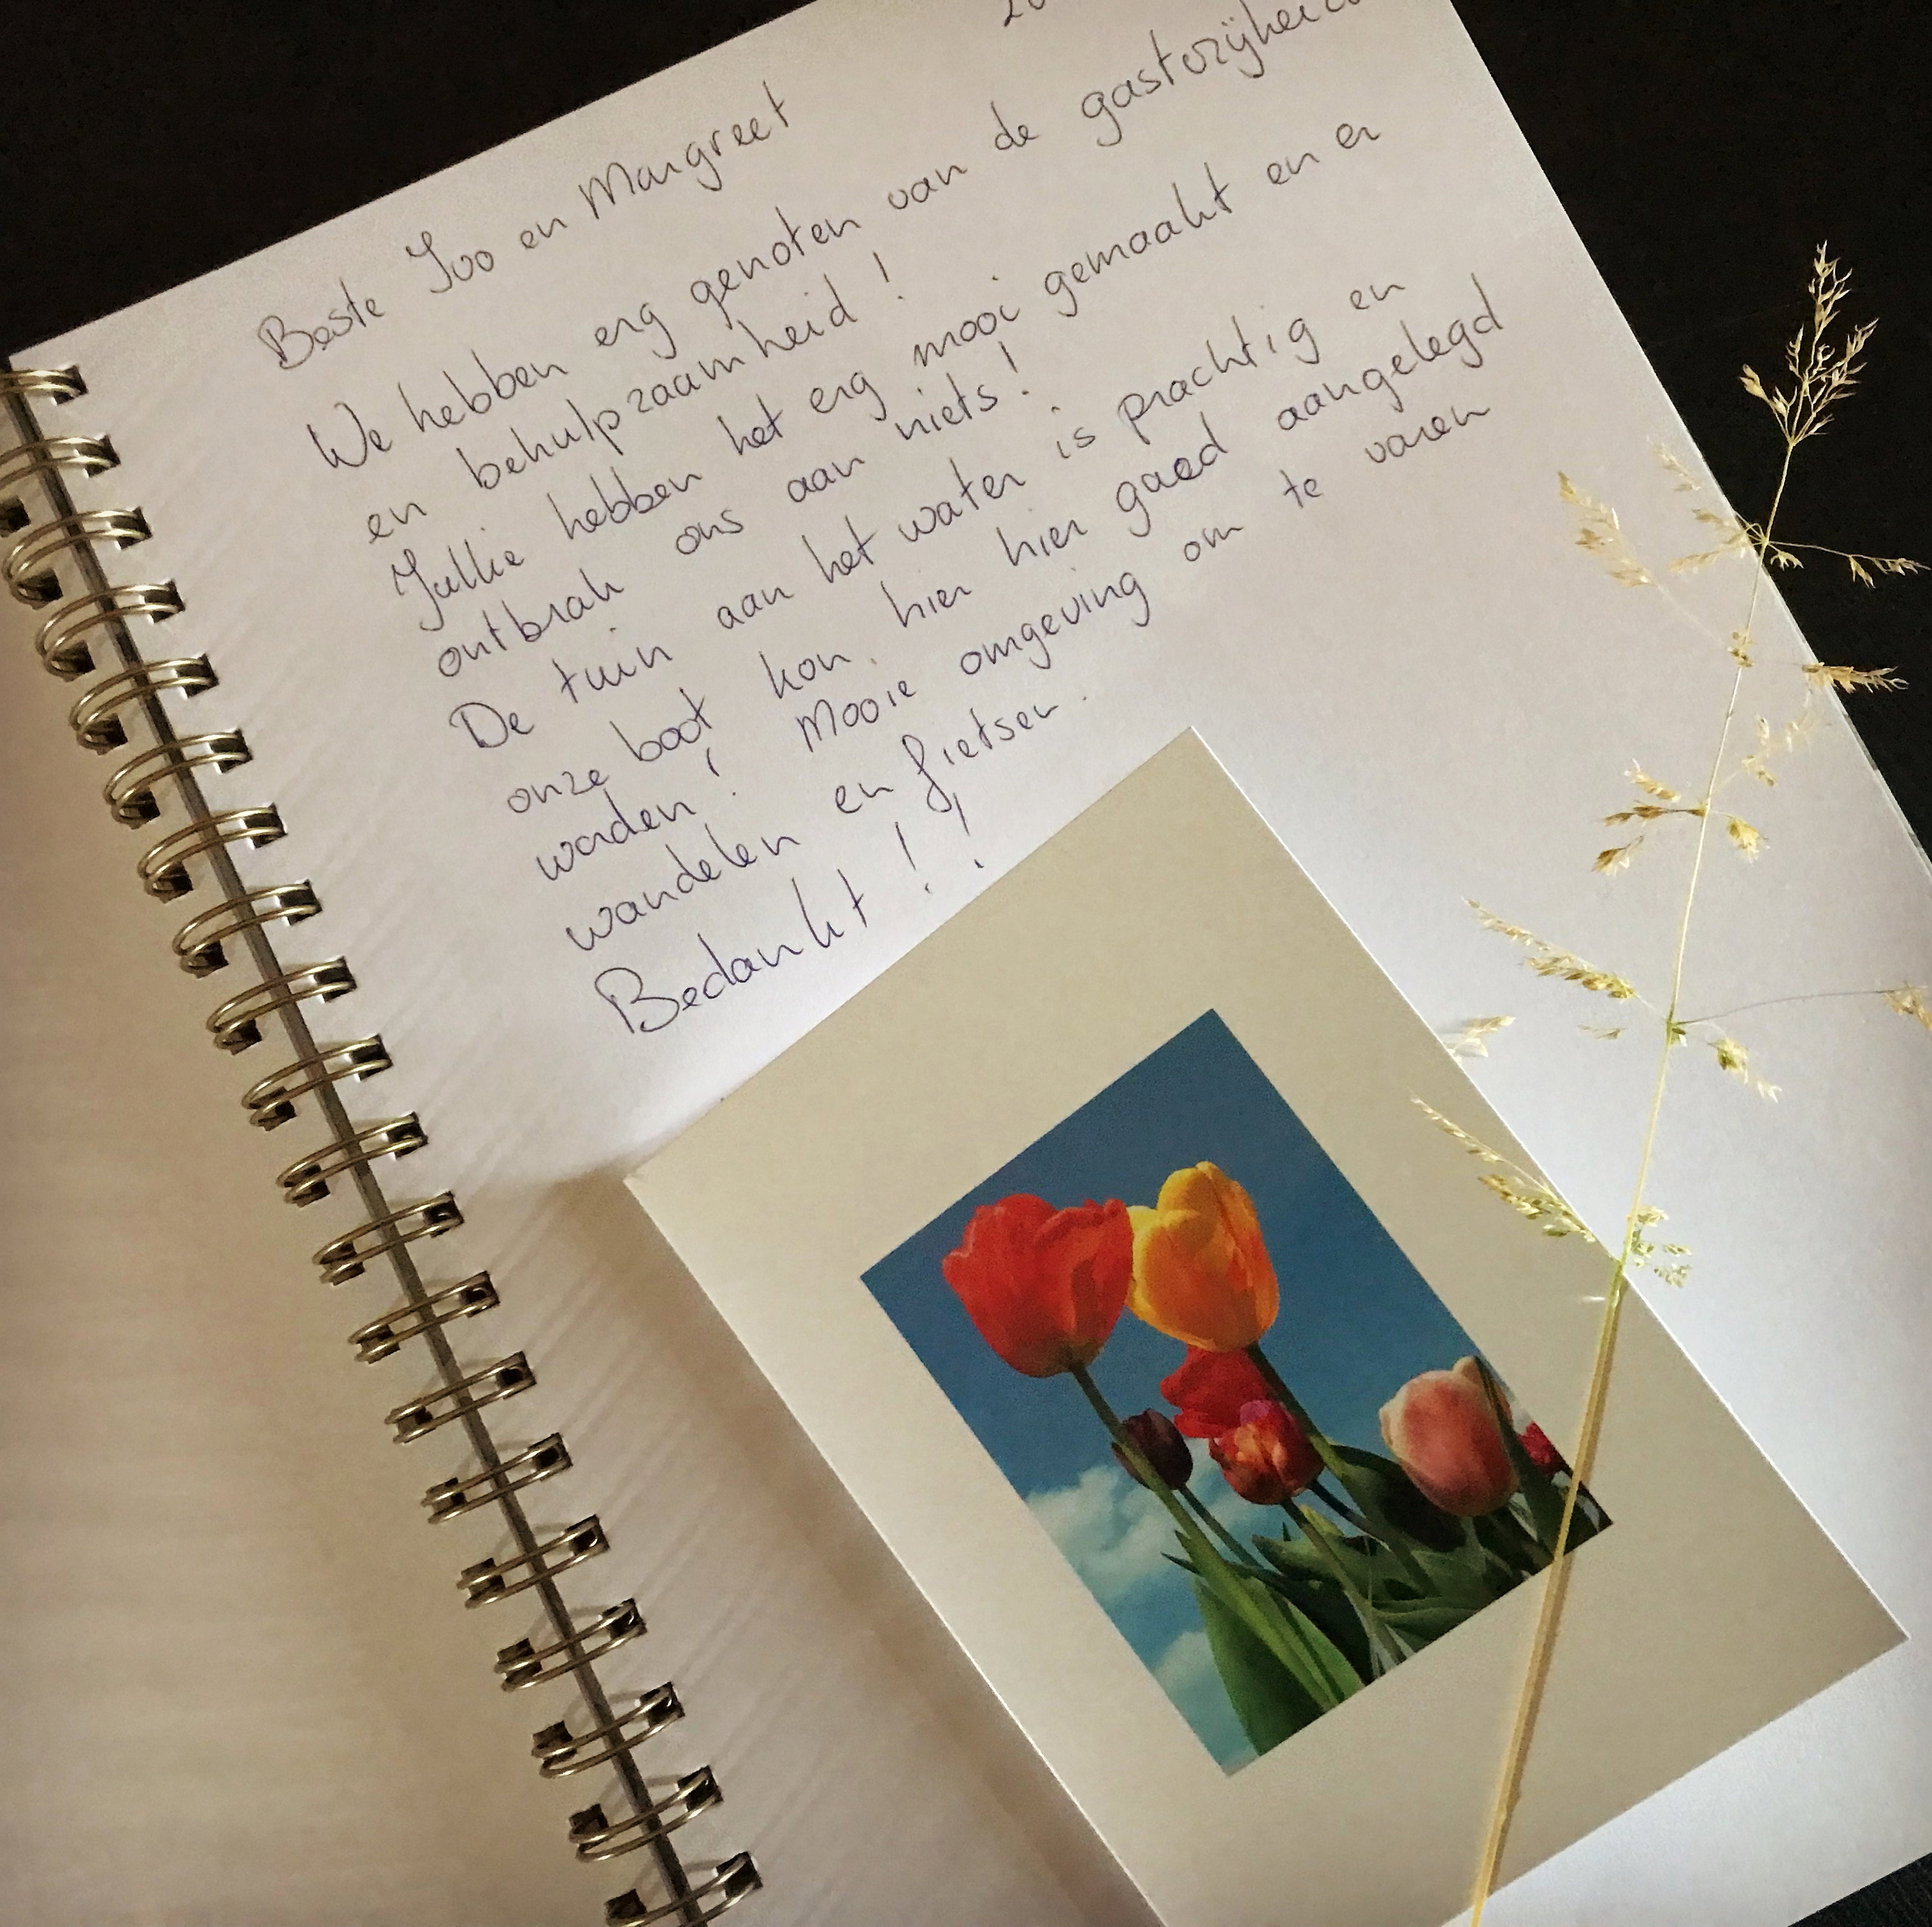 Beste Ivo en Margreet
We hebben erg genoten van de gastvrijheid
en behulpzaamheid !
Jullie hebben het erg mooi gemaakt en er
ontbrak ons aan niets !
De tuin aan het water is prachtig en
onze boot kon hier hier goed aangelegd
worden ! Mooie omgeving om te varen
wandelen en fietsen.
Bedankt ! !